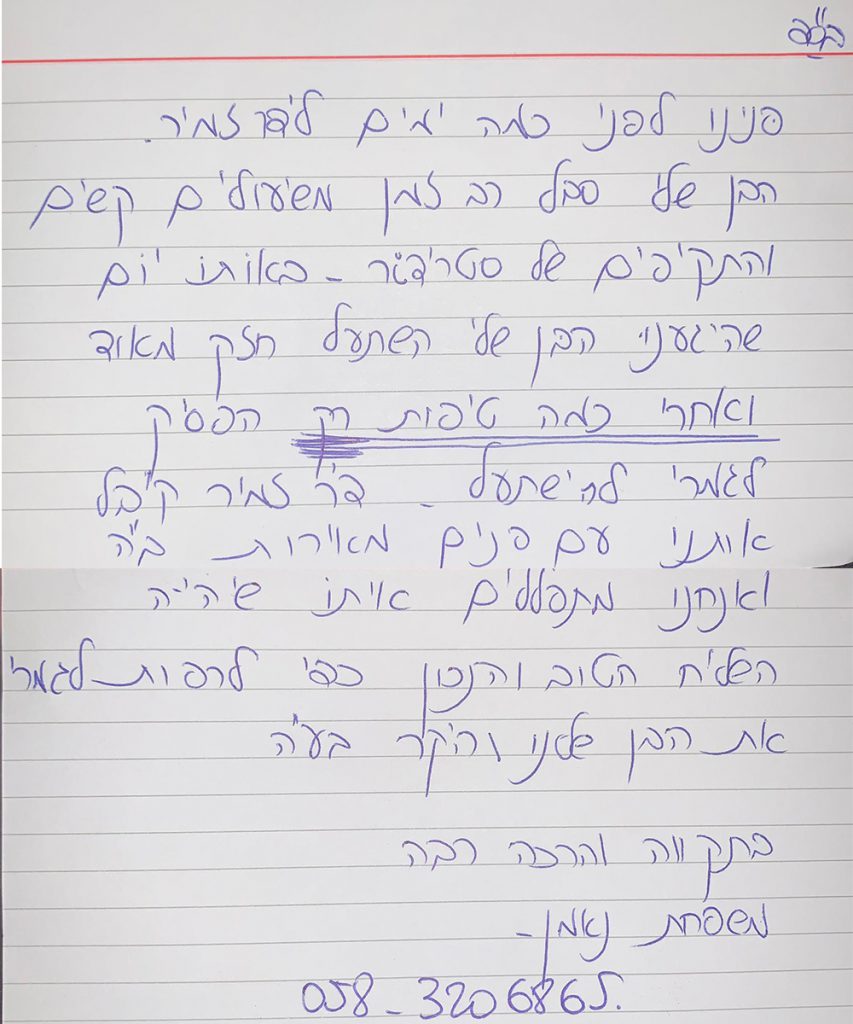 בס"ד
פנינו לפני כמה ימים לדר זמיר.
הבן שלי סבל רב זמן משיעולים קשים
והתקיפים של סטרידור - באותו יום
שהיגענוי הבן שלי השתעל חזק מאוד
ואחרי כמה טיפות רק הפסיק
לגמרי להישתעל - ד"ר זמיר קיבל
אותנו עם פנים מאירות ב"ה
ואנחנו מתפללים איתו שיהיה
השליח הטוב והנכון כדי לרפות לגמרי
את הבן שלנו היקר בע"ה
בתקווה והרבה רבה
משפחת נאמן -
058-3206865.